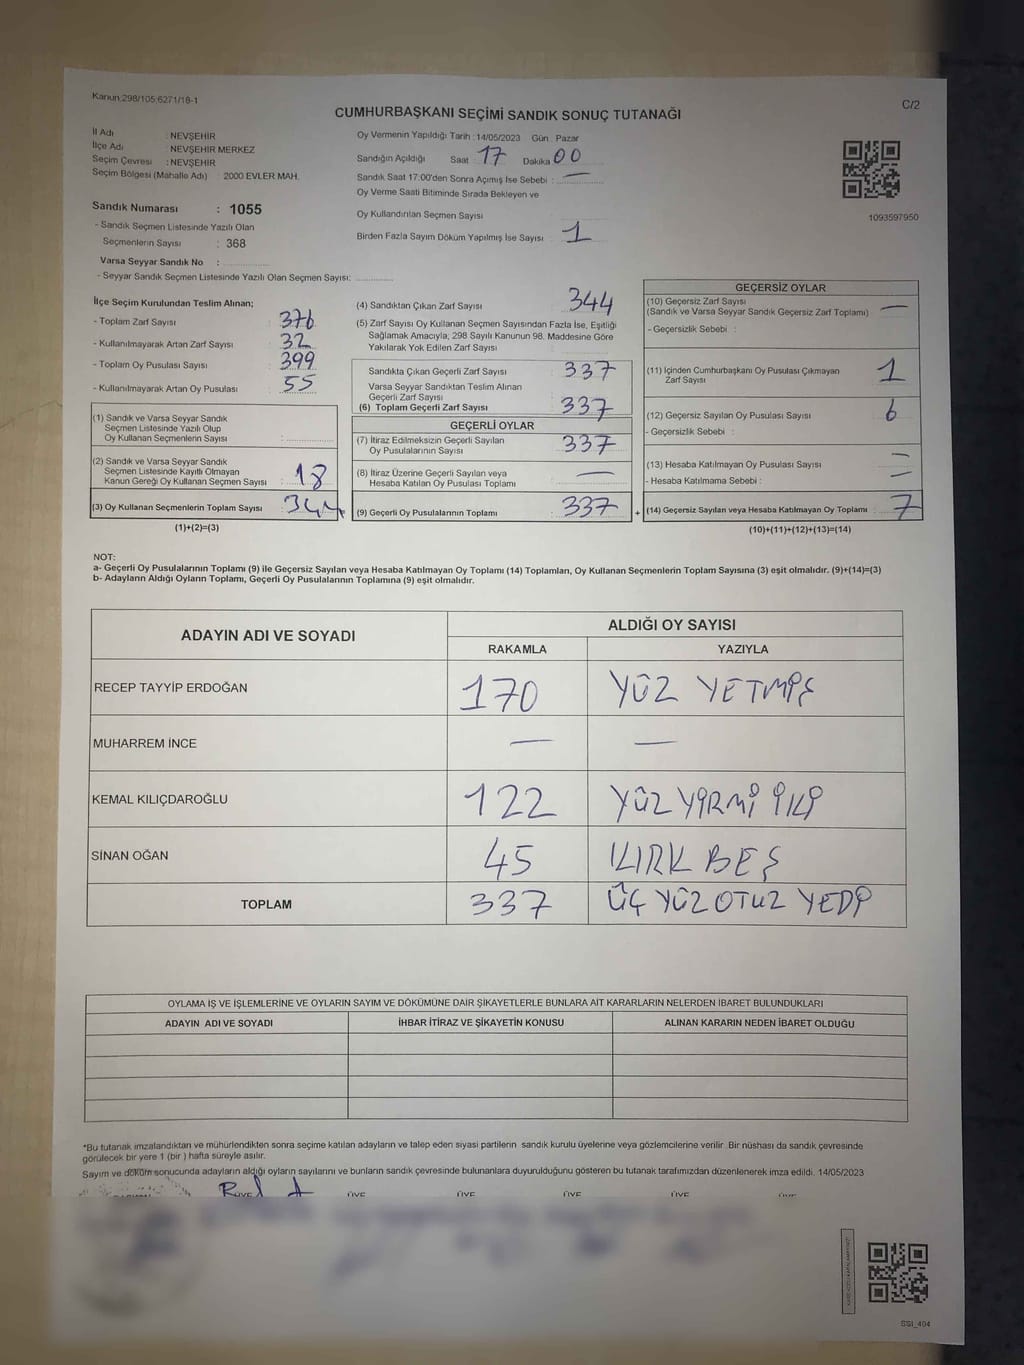 Kanun:298/105;6271/18-1
C/2
CUMHURBAŞKANI SEÇİMİ SANDIK SONUÇ TUTANAĞI
İl Adı : NEVŞEHİR
İlçe Adı : NEVŞEHİR MERKEZ
Seçim Çevresi : NEVŞEHİR
Seçim Bölgesi (Mahalle Adı) : 2000 EVLER MAH.
Sandık Numarası : 1055
- Sandık Seçmen Listesinde Yazılı Olan
Seçmenlerin Sayısı : 368
Varsa Seyyar Sandık No :
- Seyyar Sandık Seçmen Listesinde Yazılı Olan Seçmen Sayısı:
Oy Vermenin Yapıldığı Tarih : 14/05/2023 Gün : Pazar
Sandığın Açıldığı Saat : 17 Dakika 00
Sandık Saat 17:00'den Sonra Açımış İse Sebebi : —
Oy Verme Saati Bitiminde Sırada Bekleyen ve
Oy Kullandırılan Seçmen Sayısı
Birden Fazla Sayım Döküm Yapılmış İse Sayısı : 1
1093597950
İlçe Seçim Kurulundan Teslim Alınan;
- Toplam Zarf Sayısı : 376
- Kullanılmayarak Artan Zarf Sayısı : 32
- Toplam Oy Pusulası Sayısı : 399
- Kullanılmayarak Artan Oy Pusulası : 55
(1) Sandık ve Varsa Seyyar Sandık
Seçmen Listesinde Yazılı Olup
Oy Kullanan Seçmenlerin Sayısı :
(2) Sandık ve Varsa Seyyar Sandık
Seçmen Listesinde Kayıtlı Olmayan
Kanun Gereği Oy Kullanan Seçmen Sayısı : 18
(3) Oy Kullanan Seçmenlerin Toplam Sayısı : 344
(1)+(2)=(3)
(4) Sandıktan Çıkan Zarf Sayısı 344
(5) Zarf Sayısı Oy Kullanan Seçmen Sayısından Fazla İse, Eşitliği
Sağlamak Amacıyla, 298 Sayılı Kanunun 98. Maddesine Göre
Yakılarak Yok Edilen Zarf Sayısı :
Sandıkta Çıkan Geçerli Zarf Sayısı : 337
Varsa Seyyar Sandıktan Teslim Alınan
Geçerli Zarf Sayısı
(6) Toplam Geçerli Zarf Sayısı : 337
GEÇERLİ OYLAR
(7) İtiraz Edilmeksizin Geçerli Sayılan
Oy Pusulalarının Sayısı : 337
(8) İtiraz Üzerine Geçerli Sayılan veya
Hesaba Katılan Oy Pusulası Toplamı : —
(9) Geçerli Oy Pusulalarının Toplamı : 337 +
GEÇERSİZ OYLAR
(10) Geçersiz Zarf Sayısı
(Sandık ve Varsa Seyyar Sandık Geçersiz Zarf Toplamı) —
- Geçersizlik Sebebi :
(11) İçinden Cumhurbaşkanı Oy Pusulası Çıkmayan
Zarf Sayısı 1
(12) Geçersiz Sayılan Oy Pusulası Sayısı 6
- Geçersizlik Sebebi :
(13) Hesaba Katılmayan Oy Pusulası Sayısı —
- Hesaba Katılmama Sebebi : —
(14) Geçersiz Sayılan veya Hesaba Katılmayan Oy Toplamı : 7
(10)+(11)+(12)+(13)=(14)
NOT:
a- Geçerli Oy Pusulalarının Toplamı (9) ile Geçersiz Sayılan veya Hesaba Katılmayan Oy Toplamı (14) Toplamları, Oy Kullanan Seçmenlerin Toplam Sayısına (3) eşit olmalıdır. (9)+(14)=(3)
b- Adayların Aldığı Oyların Toplamı, Geçerli Oy Pusulalarının Toplamına (9) eşit olmalıdır.
ADAYIN ADI VE SOYADI ALDIĞI OY SAYISI
RAKAMLA YAZIYLA
RECEP TAYYİP ERDOĞAN 170 YÜZ YETMİŞ
MUHARREM İNCE — —
KEMAL KILIÇDAROĞLU 122 YÜZ YİRMİ İKİ
SİNAN OĞAN 45 KIRK BEŞ
TOPLAM 337 ÜÇ YÜZ OTUZ YEDİ
OYLAMA İŞ VE İŞLEMLERİNE VE OYLARIN SAYIM VE DÖKÜMÜNE DAİR ŞİKAYETLERLE BUNLARA AİT KARARLARIN NELERDEN İBARET BULUNDUKLARI
ADAYIN ADI VE SOYADI İHBAR İTİRAZ VE ŞİKAYETİN KONUSU ALINAN KARARIN NEDEN İBARET OLDUĞU
*Bu tutanak imzalandıktan ve mühürlendikten sonra seçime katılan adayların ve talep eden siyasi partilerin sandık kurulu üyelerine veya gözlemcilerine verilir. Bir nüshası da sandık çevresinde
görülecek bir yere 1 (bir ) hafta süreyle asılır.
Sayım ve döküm sonucunda adayların aldığı oyların sayılarını ve bunların sandık çevresinde bulunanlara duyurulduğunu gösteren bu tutanak tarafımızdan düzenlenerek imza edildi. 14/05/2023
ÜYE ÜYE ÜYE ÜYE ÜYE ÜYE
SSI_404